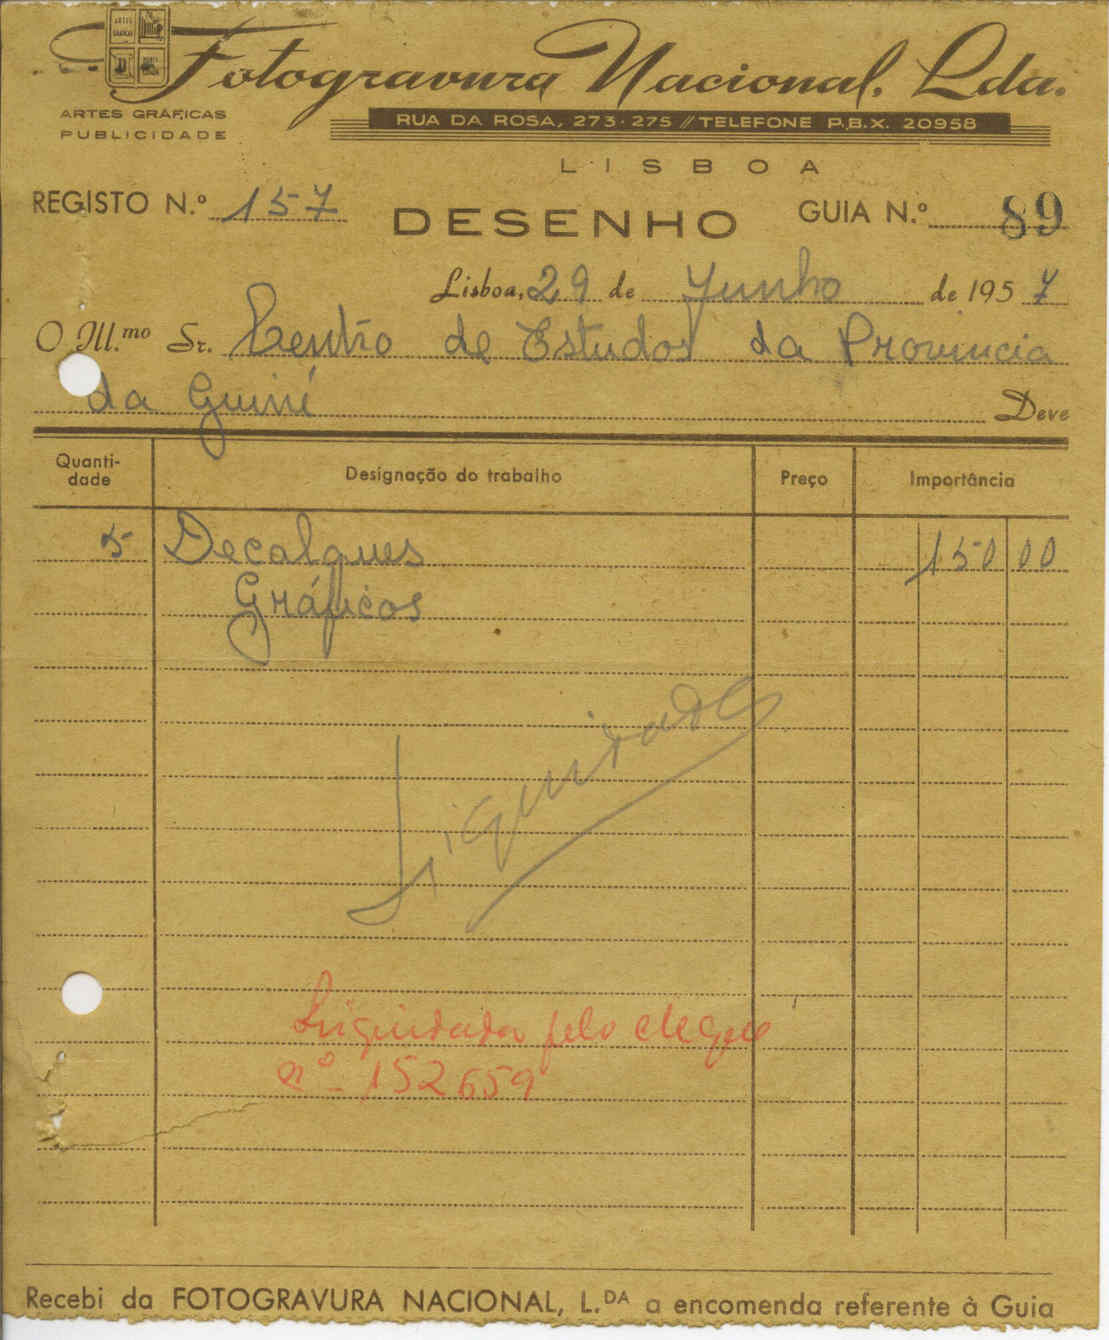 Fotogravura Nacional. Lda.
ARTES GRÁFICAS
PUBLICIDADE
RUA DA ROSA, 273-275 // TELEFONE P.B.X. 20958
LISBOA
REGISTO N.º 157
DESENHO
GUIA N.º 89
Lisboa, 29 de Junho de 1957
O Ill.mo Sr. Centro de Estudos da Provincia
da Guiné Deve
Quanti-
dade
Designação do trabalho
Preço
Importância
5 Decalques 150 00
Gráficos
Liquidado
Liquidada pelo cheque
nº - 152659
Recebi da FOTOGRAVURA NACIONAL, L.DA a encomenda referente à Guia